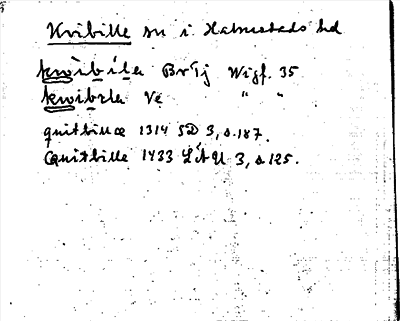 Kvibille sn i Halmstads hd
kwibila BrTj Wigf. 35
kwibila Ve " "
quitbillæ 1314 SD 3, s. 187.
Quitbille 1433 LÄU 3, s 125.